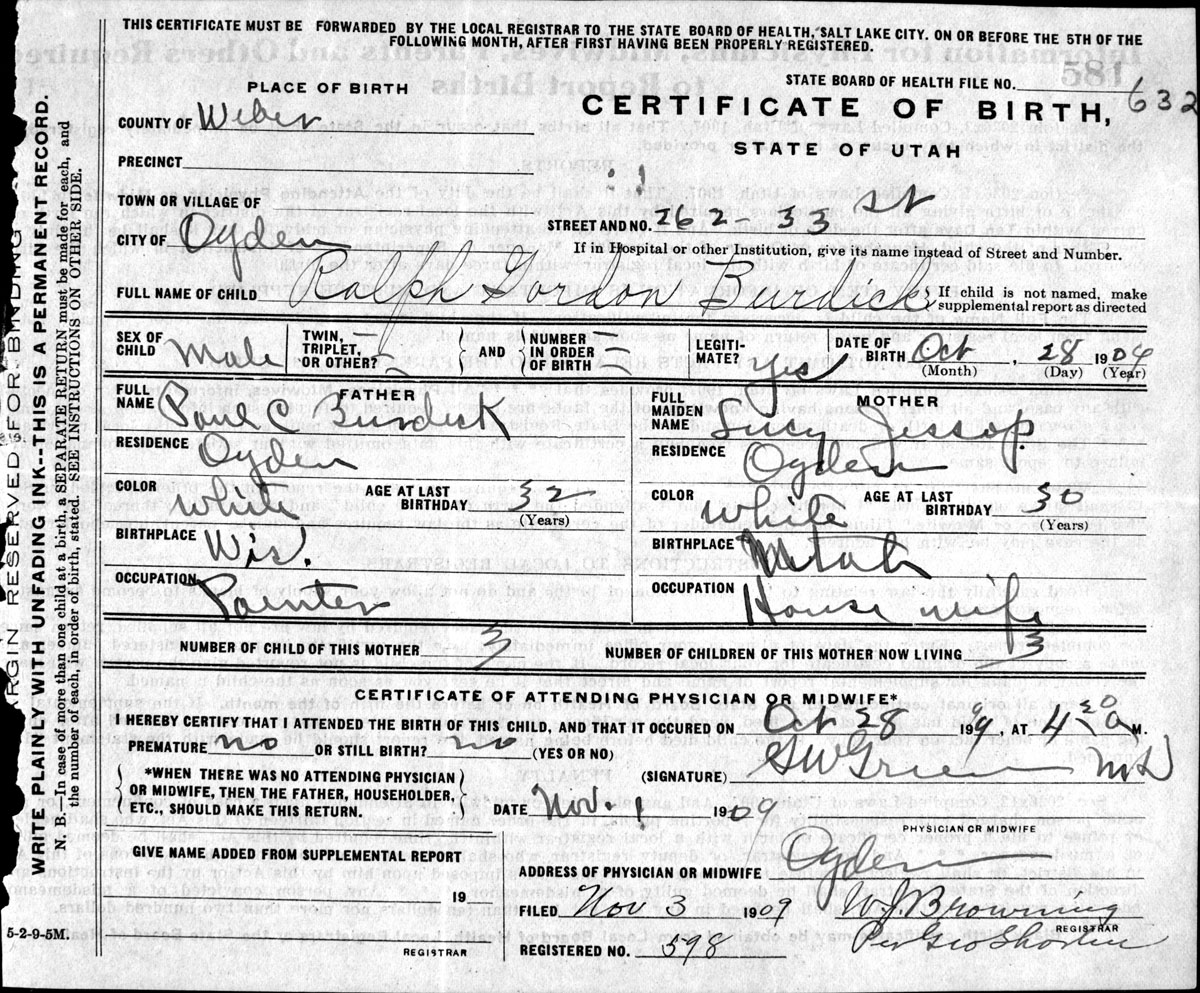 THIS CERTIFICATE MUST BE FORWARDED BY THE LOCAL REGISTRAR TO THE STATE BOARD OF HEALTH, SALT LAKE CITY. ON OR BEFORE THE 5TH OF THE
FOLLOWING MONTH, AFTER FIRST HAVING BEEN PROPERLY REGISTERED.
STATE BOARD OF HEALTH FILE NO. 632
PLACE OF BIRTH
CERTIFICATE OF BIRTH,
STATE OF UTAH
COUNTY OF Weber
PRECINCT
TOWN OR VILLAGE OF
STREET AND NO. 262 - 33 st
CITY OF Ogden
If in Hospital or other Institution, give its name instead of Street and Number.
FULL NAME OF CHILD Ralph Gordon Burdick { If child is not named, make
supplemental report as directed
SEX OF CHILD Male
TWIN, TRIPLET, OR OTHER? —
AND { NUMBER IN ORDER OF BIRTH —
LEGITIMATE? Yes
DATE OF BIRTH Oct, 28 1909
(Month) (Day) (Year)
FATHER
FULL NAME Paul C Burdick
RESIDENCE Ogden
COLOR White AGE AT LAST BIRTHDAY 32
(Years)
BIRTHPLACE Wis.
OCCUPATION Painter
MOTHER
FULL MAIDEN NAME Lucy Jessop
RESIDENCE Ogden
COLOR White AGE AT LAST BIRTHDAY 30
(Years)
BIRTHPLACE Utah
OCCUPATION House wife
NUMBER OF CHILD OF THIS MOTHER 3 NUMBER OF CHILDREN OF THIS MOTHER NOW LIVING 3
CERTIFICATE OF ATTENDING PHYSICIAN OR MIDWIFE*
I HEREBY CERTIFY THAT I ATTENDED THE BIRTH OF THIS CHILD, AND THAT IT OCCURED ON Oct 28 199, AT 4 30 a M.
PREMATURE no OR STILL BIRTH? no (YES OR NO)
(SIGNATURE) MD
*WHEN THERE WAS NO ATTENDING PHYSICIAN
OR MIDWIFE, THEN THE FATHER, HOUSEHOLDER,
ETC. SHOULD MAKE THIS RETURN.
DATE Nov. 1 1909
PHYSICIAN OR MIDWIFE
GIVE NAME ADDED FROM SUPPLEMENTAL REPORT
ADDRESS OF PHYSICIAN OR MIDWIFE Ogden
19
FILED Nov 3 1909 W J Browning
REGISTRAR
Per Geo Shorten
REGISTRAR
REGISTERED NO. 598
5-2-9-5M.
ARGIN RESERVED FOR BINDING
WRITE PLAINLY WITH UNFADING INK--THIS IS A PERMANENT RECORD.
N. B.—In case of more than one child at a birth, a SEPARATE RETURN must be made for each, and
the number of each, in order of birth, stated. SEE INSTRUCTIONS ON OTHER SIDE.